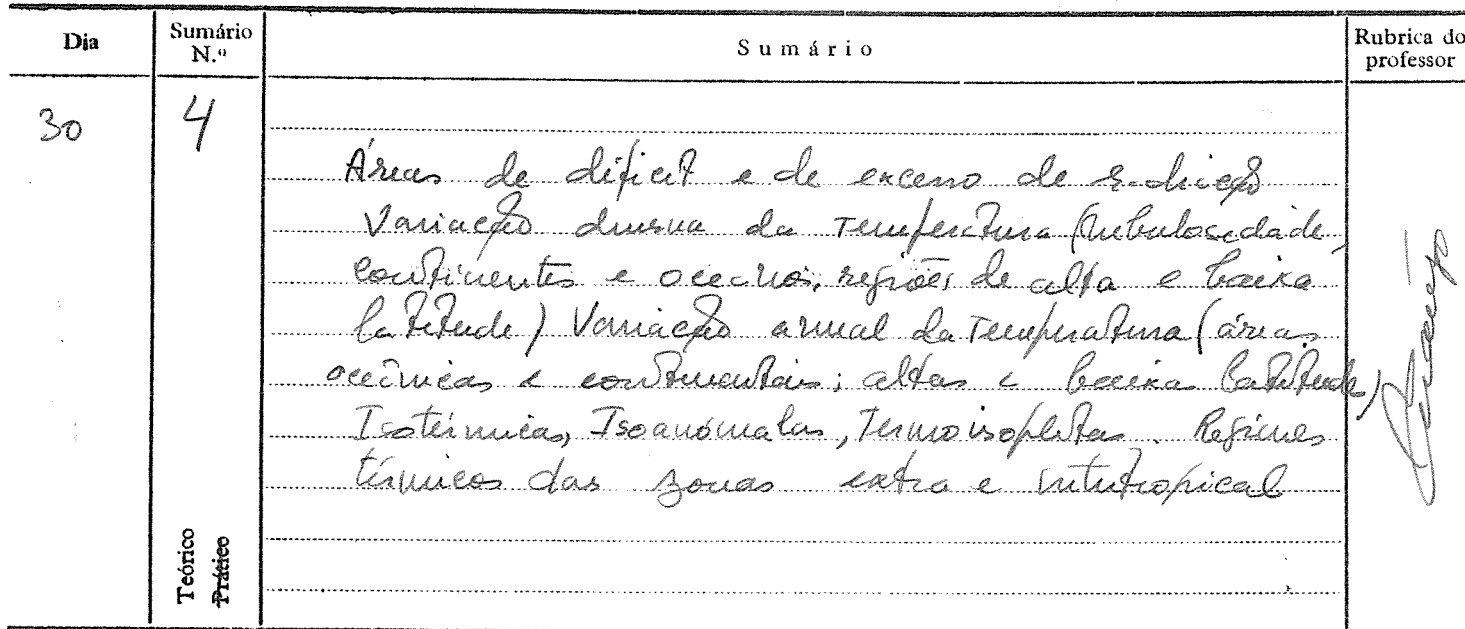 Dia
Sumário
N.º
Sumário
Rubrica do
professor
30
4
Áreas de déficit e de excesso de radiação
Variação diurna da Temperatura (nebulosidade,
continentes e oceanos, regiões de alta e baixa
latitude) Variação anual da Temperatura (áreas
oceânicas e continentais; altas e baixas latitudes)
Isotérmicas, Isoanómalas, Termoisopletas. Regimes
térmicos das zonas extra e intertropical
Teórico
Prático